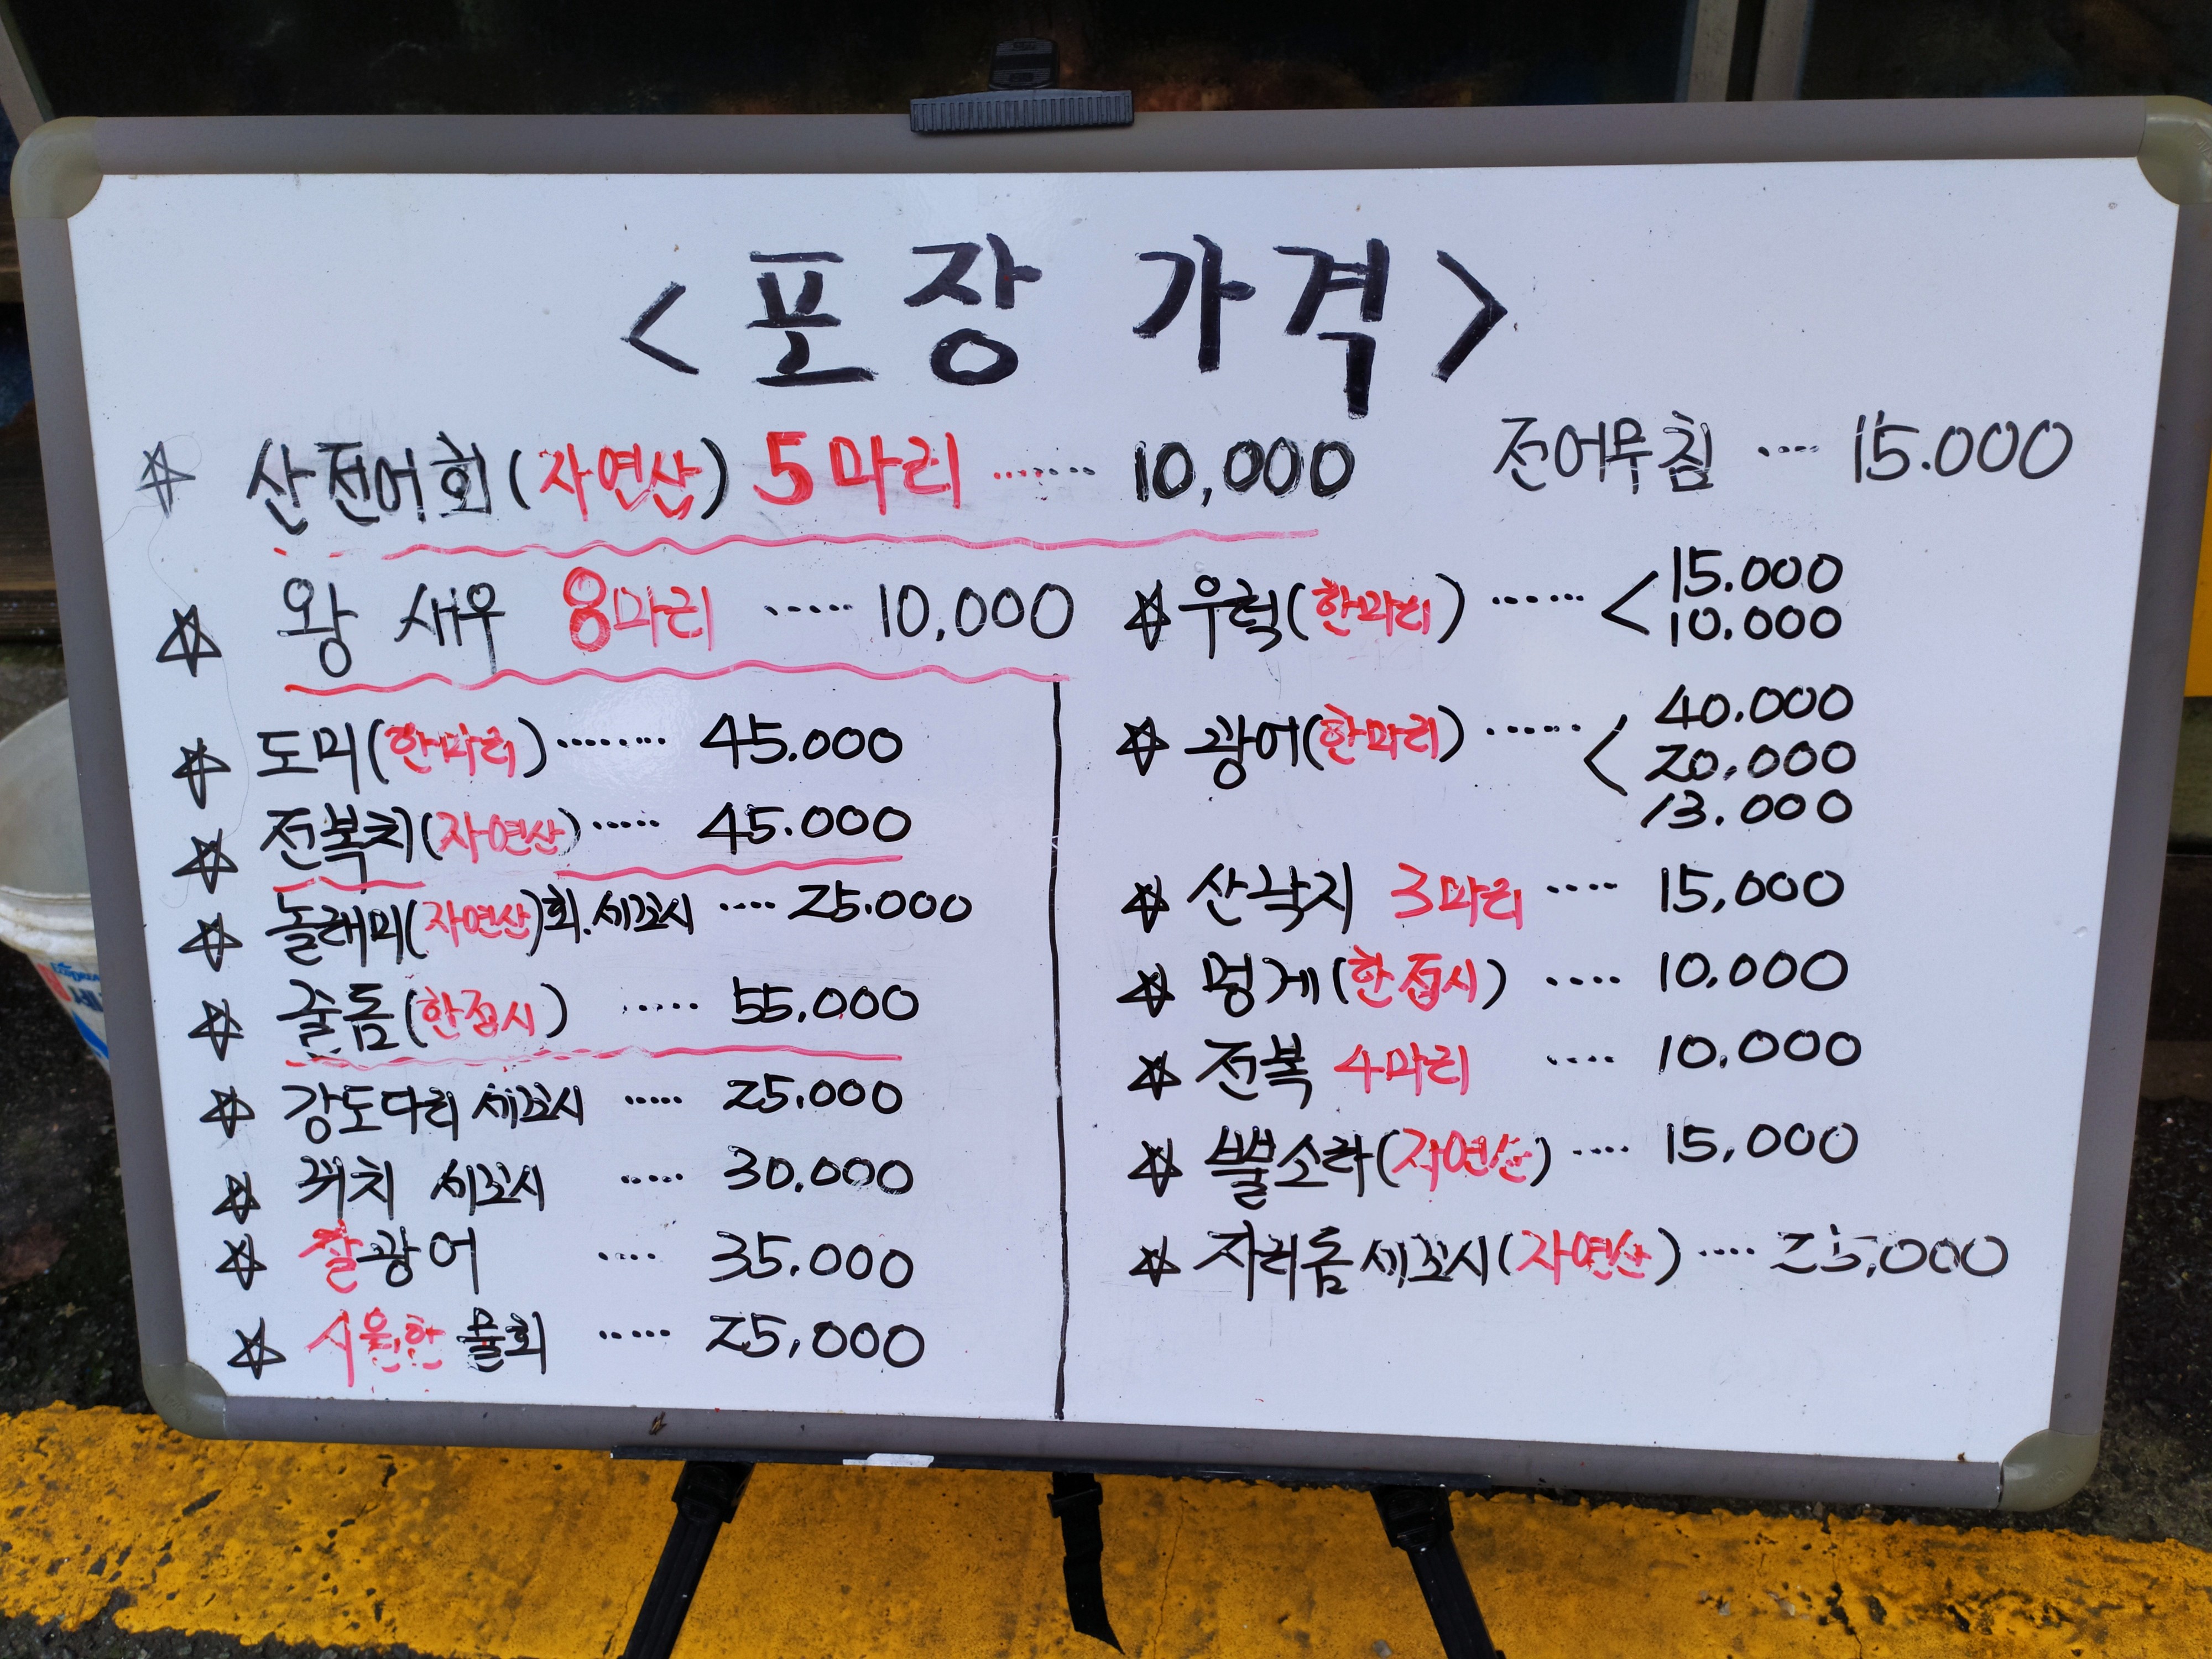 < 포장 가격 >
☆ 산전어회(자연산) 5마리 ...... 10,000
전어무침 .... 15.000
☆ 왕 새우 8마리 ..... 10,000
☆ 도미(한마리) ....... 45.000
☆ 전복치(자연산) ..... 45.000
☆ 놀래미(자연산)회.세꼬시 .... 25.000
☆ 줄돔(한접시) ..... 55,000
☆ 강도다리 세꼬시 ..... 25.000
☆ 쥐치 세꼬시 ..... 30.000
☆ 찰광어 .... 35.000
☆ 시원한 물회 ..... 25,000
☆ 우럭(한마리) ...... < 15.000
10.000
☆ 광어(한마리) ...... < 40.000
20.000
13.000
☆ 산낙지 3마리 .... 15,000
☆ 멍게(한접시) .... 10,000
☆ 전복 4마리 .... 10.000
☆ 뿔소라(자연산) .... 15,000
☆ 자리돔 세꼬시(자연산) .... 25,000